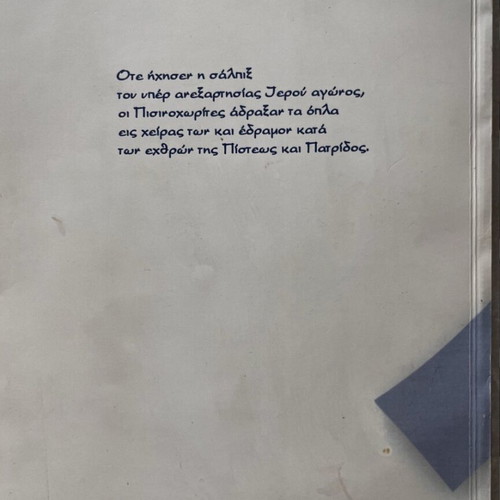 Οτε ήχησεν η σάλπιξ
του υπέρ ανεξαρτησίας Ιερού αγώνος,
οι Πισινοχωρίτες άδραξαν τα όπλα
εις χείρας των και έδραμον κατά
των εχθρών της Πίστεως και Πατρίδος.